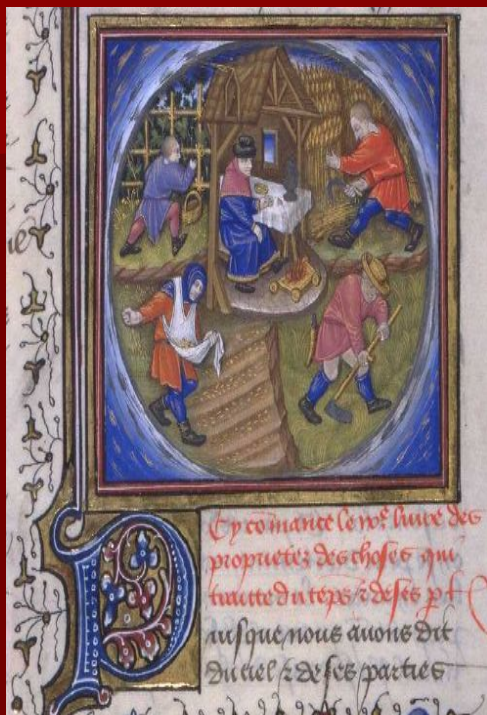 Cy cōmance le ixe livre des
proprietez des choses qui
traitte du tēps ⁊ de ses p̄t
Puis que nous avons dit
du ciel ⁊ de ses parties